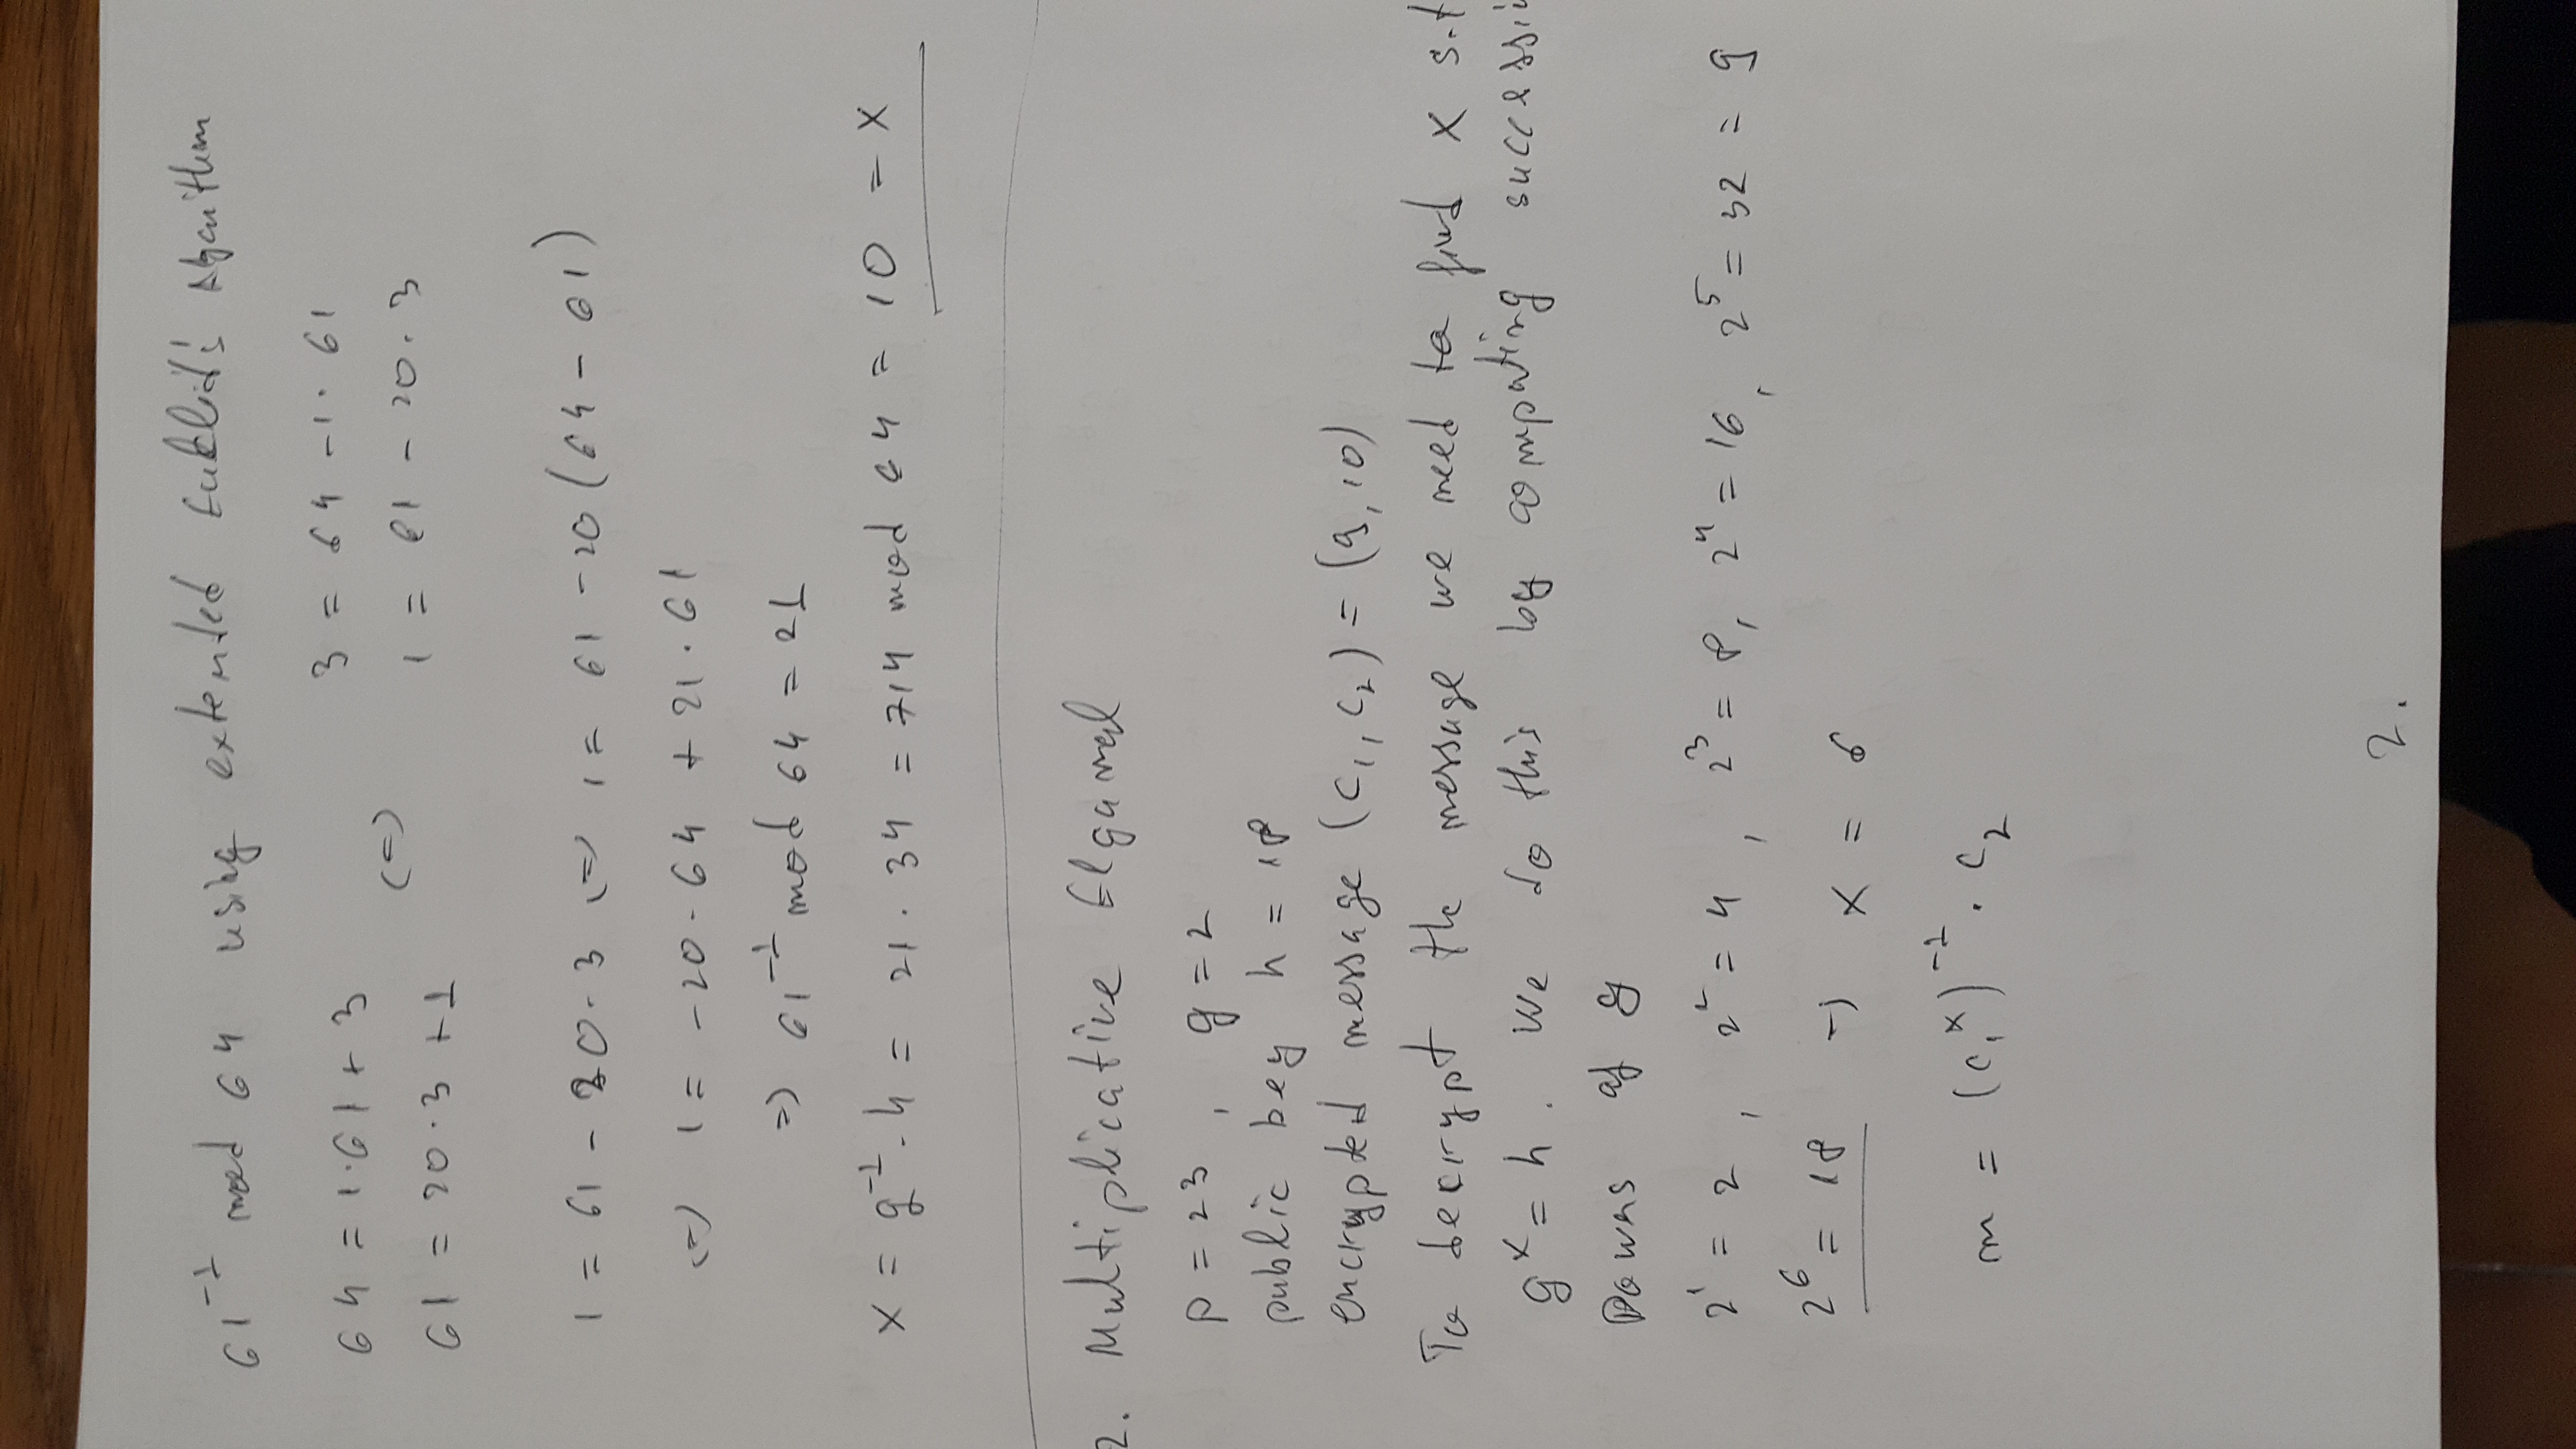 61⁻¹ mod 64 using extended Euklid's Algorithm
64 = 1·61 + 3 (=) 3 = 64 - 1·61
61 = 20·3 + 1 1 = 61 - 20·3
1 = 61 - 20·3 (=) 1 = 61 - 20(64 - 61)
(=) 1 = -20·64 + 21·61
=) 61⁻¹ mod 64 = 21
x = g⁻¹·h = 21·34 = 714 mod 64 = 10 = x
2. Multiplicative Elgamal
p = 23, g = 2
public key h = 18
encrypted message (c₁, c₂) = (9, 10)
To decrypt the message we need to find x s.t
gˣ = h. We do this by computing successi
Powers of g
2¹ = 2, 2² = 4, 2³ = 8, 2⁴ = 16, 2⁵ = 32 = 9
2⁶ = 18 -) x = 6
m = (c₁ˣ)⁻¹ · c₂
2.